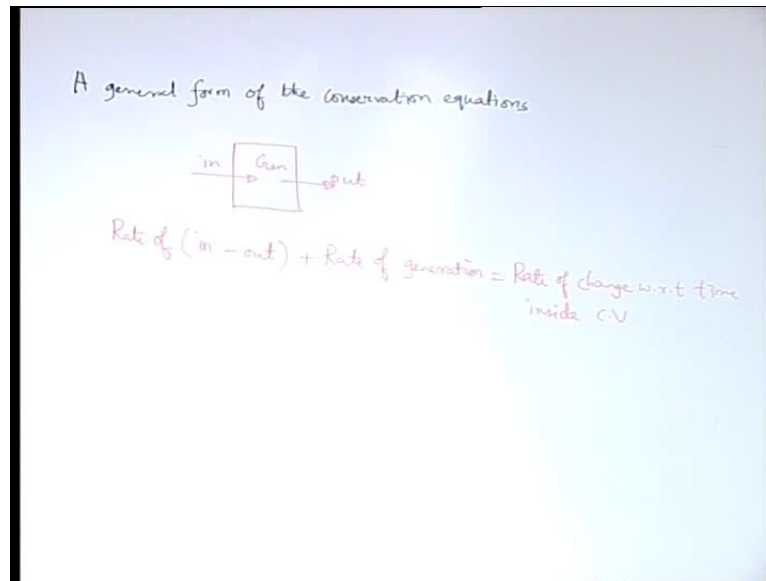 A general form of the conservation equations
in Gen out
Rate of (in - out) + Rate of generation = Rate of change w.r.t time
inside C.V